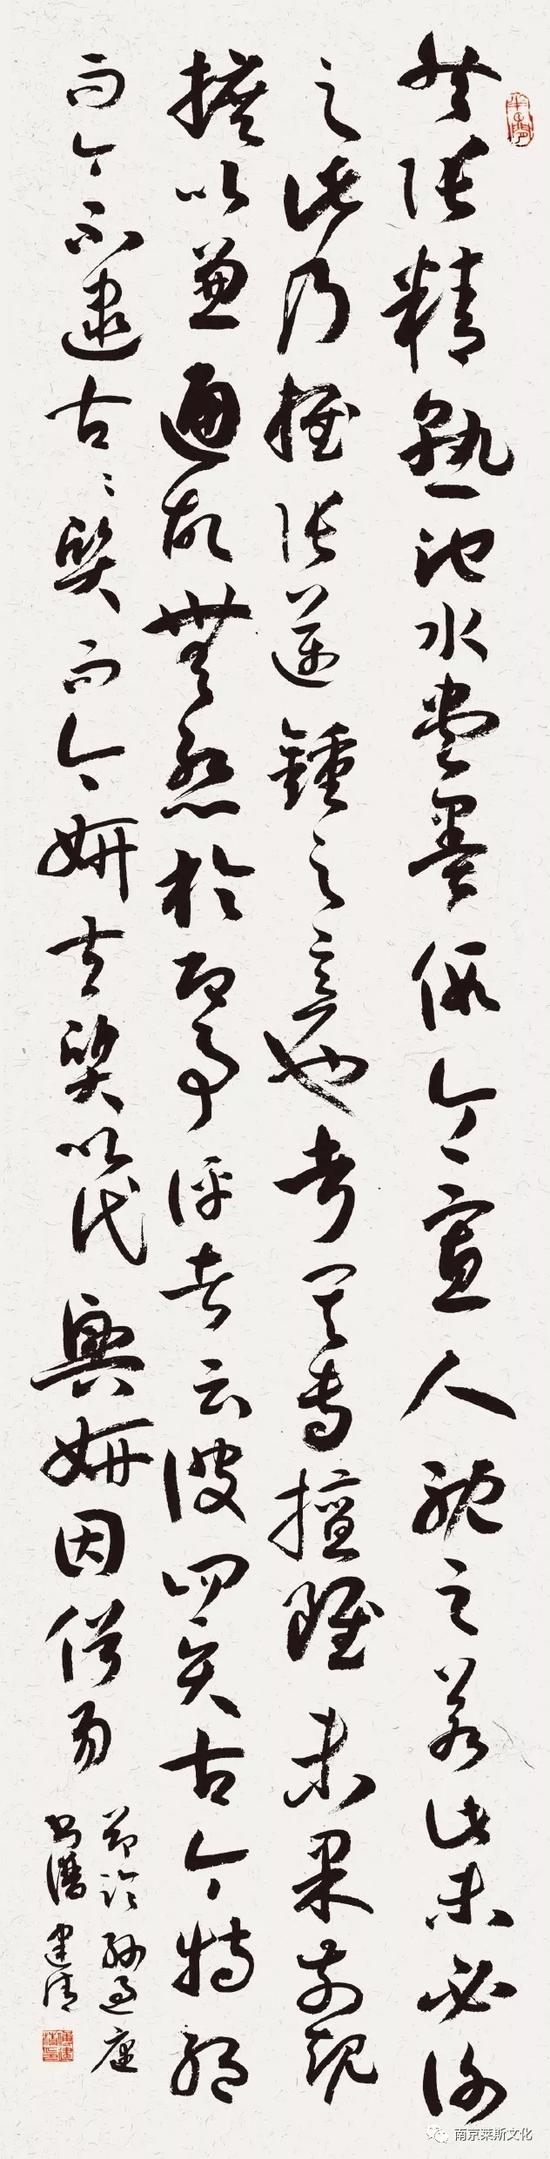 然張精熟池水盡墨假令寡人耽之若此未必謝
之此乃推張邁鍾之意也考其專擅雖未果前規
摭以兼通故無慙於即事評者云彼四賢古今特絕
而今不逮古々質而今妍夫質以代興妍因俗易
節臨孫過庭
書譜 建清
南京莱斯文化